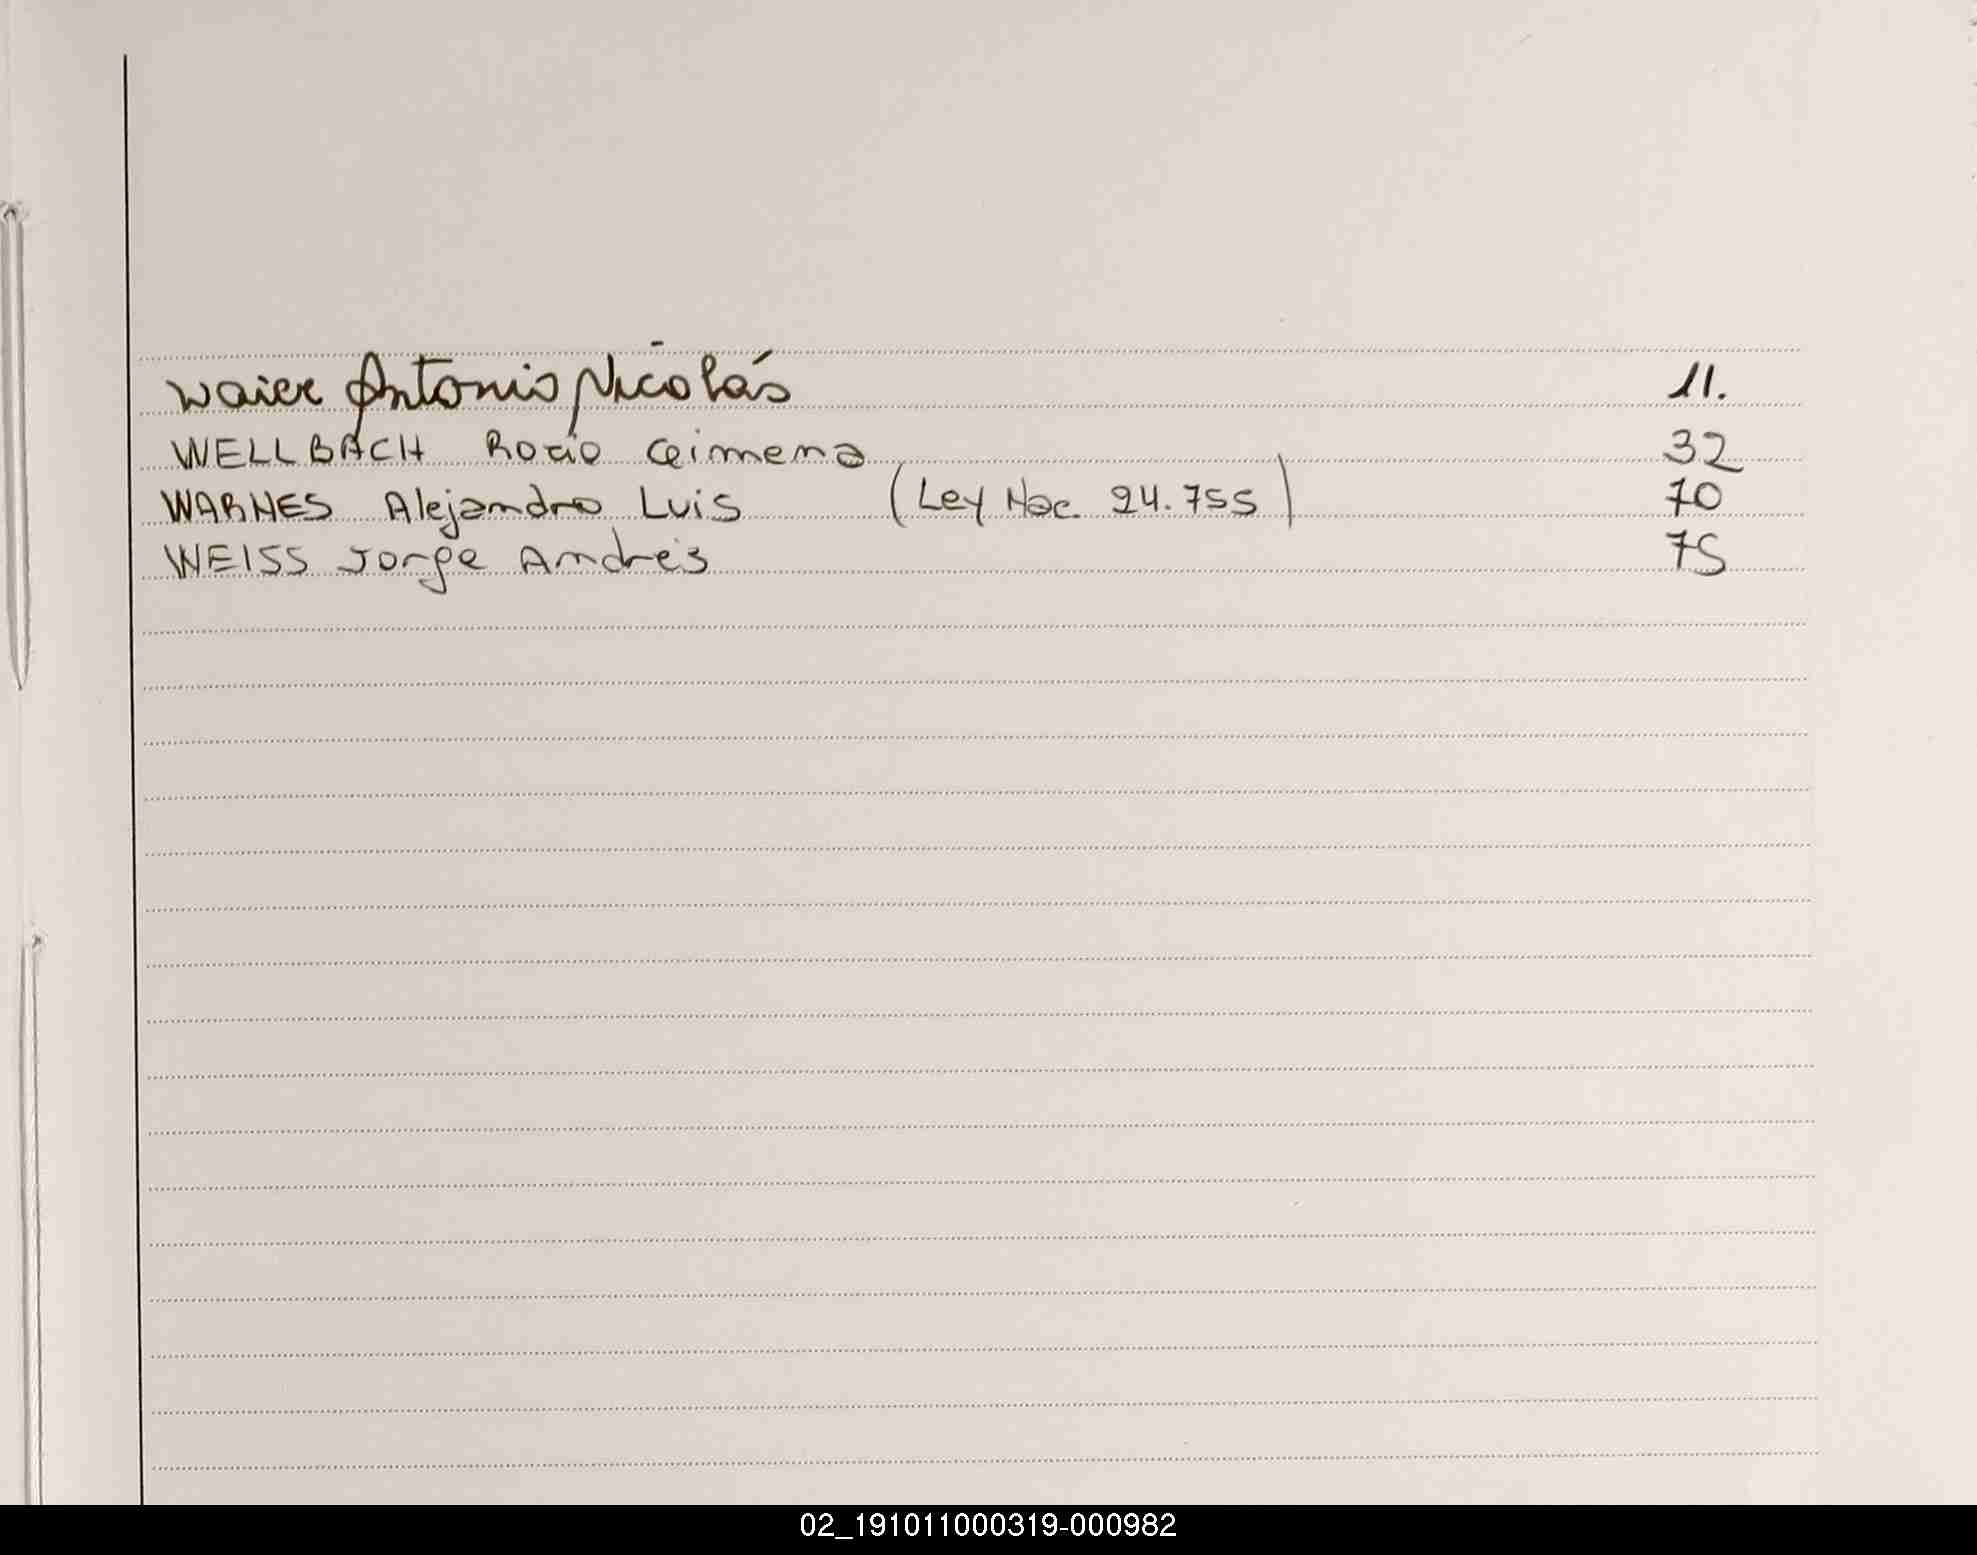 Waier Antonio Nicolás 11.
WELLBACH Rocio Geimena 32
WARNES Alejandro Luis (Ley Nac. 24.755) 70
WEISS Jorge Andrés 75
02_191011000319-000982